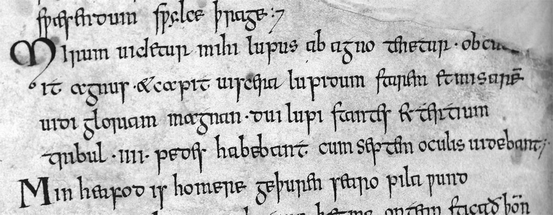 swæsendum swylce þrage:7
Mirum uidetur mihi lupus ab agno tenetur · obcu
rit agnus · & capit uiscera lupi dum starem et misarē
uidi gloriam magnan · dui lupi stantes & tertium
tribul · iiii · pedes habebant cum septem oculis uidebant:7
Min heafod is homere geþuren searo pila wund